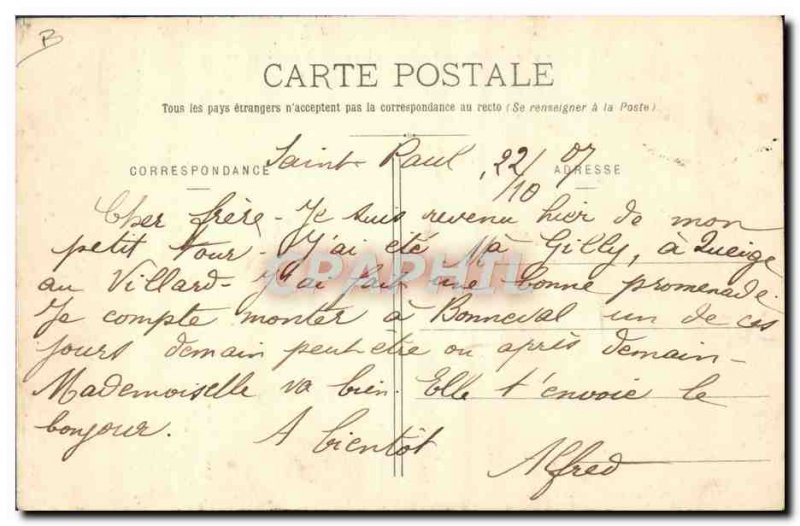 B
CARTE POSTALE
Tous les pays étrangers n'acceptent pas la correspondance au recto (Se renseigner à la Poste)
Saint-Paul, 22/10 07
CORRESPONDANCE ADRESSE
Cher frère - Je suis revenu hier de mon
petit tour - J'ai été à Gilly, à Queige
au Villard - J'ai fait une bonne promenade.
Je compte monter à Bonneval un de ces
jours demain peut-être ou après demain -
Mademoiselle va bien. Elle t'envoie le
bonjour. A bientôt
Alfred
CPAPHIL